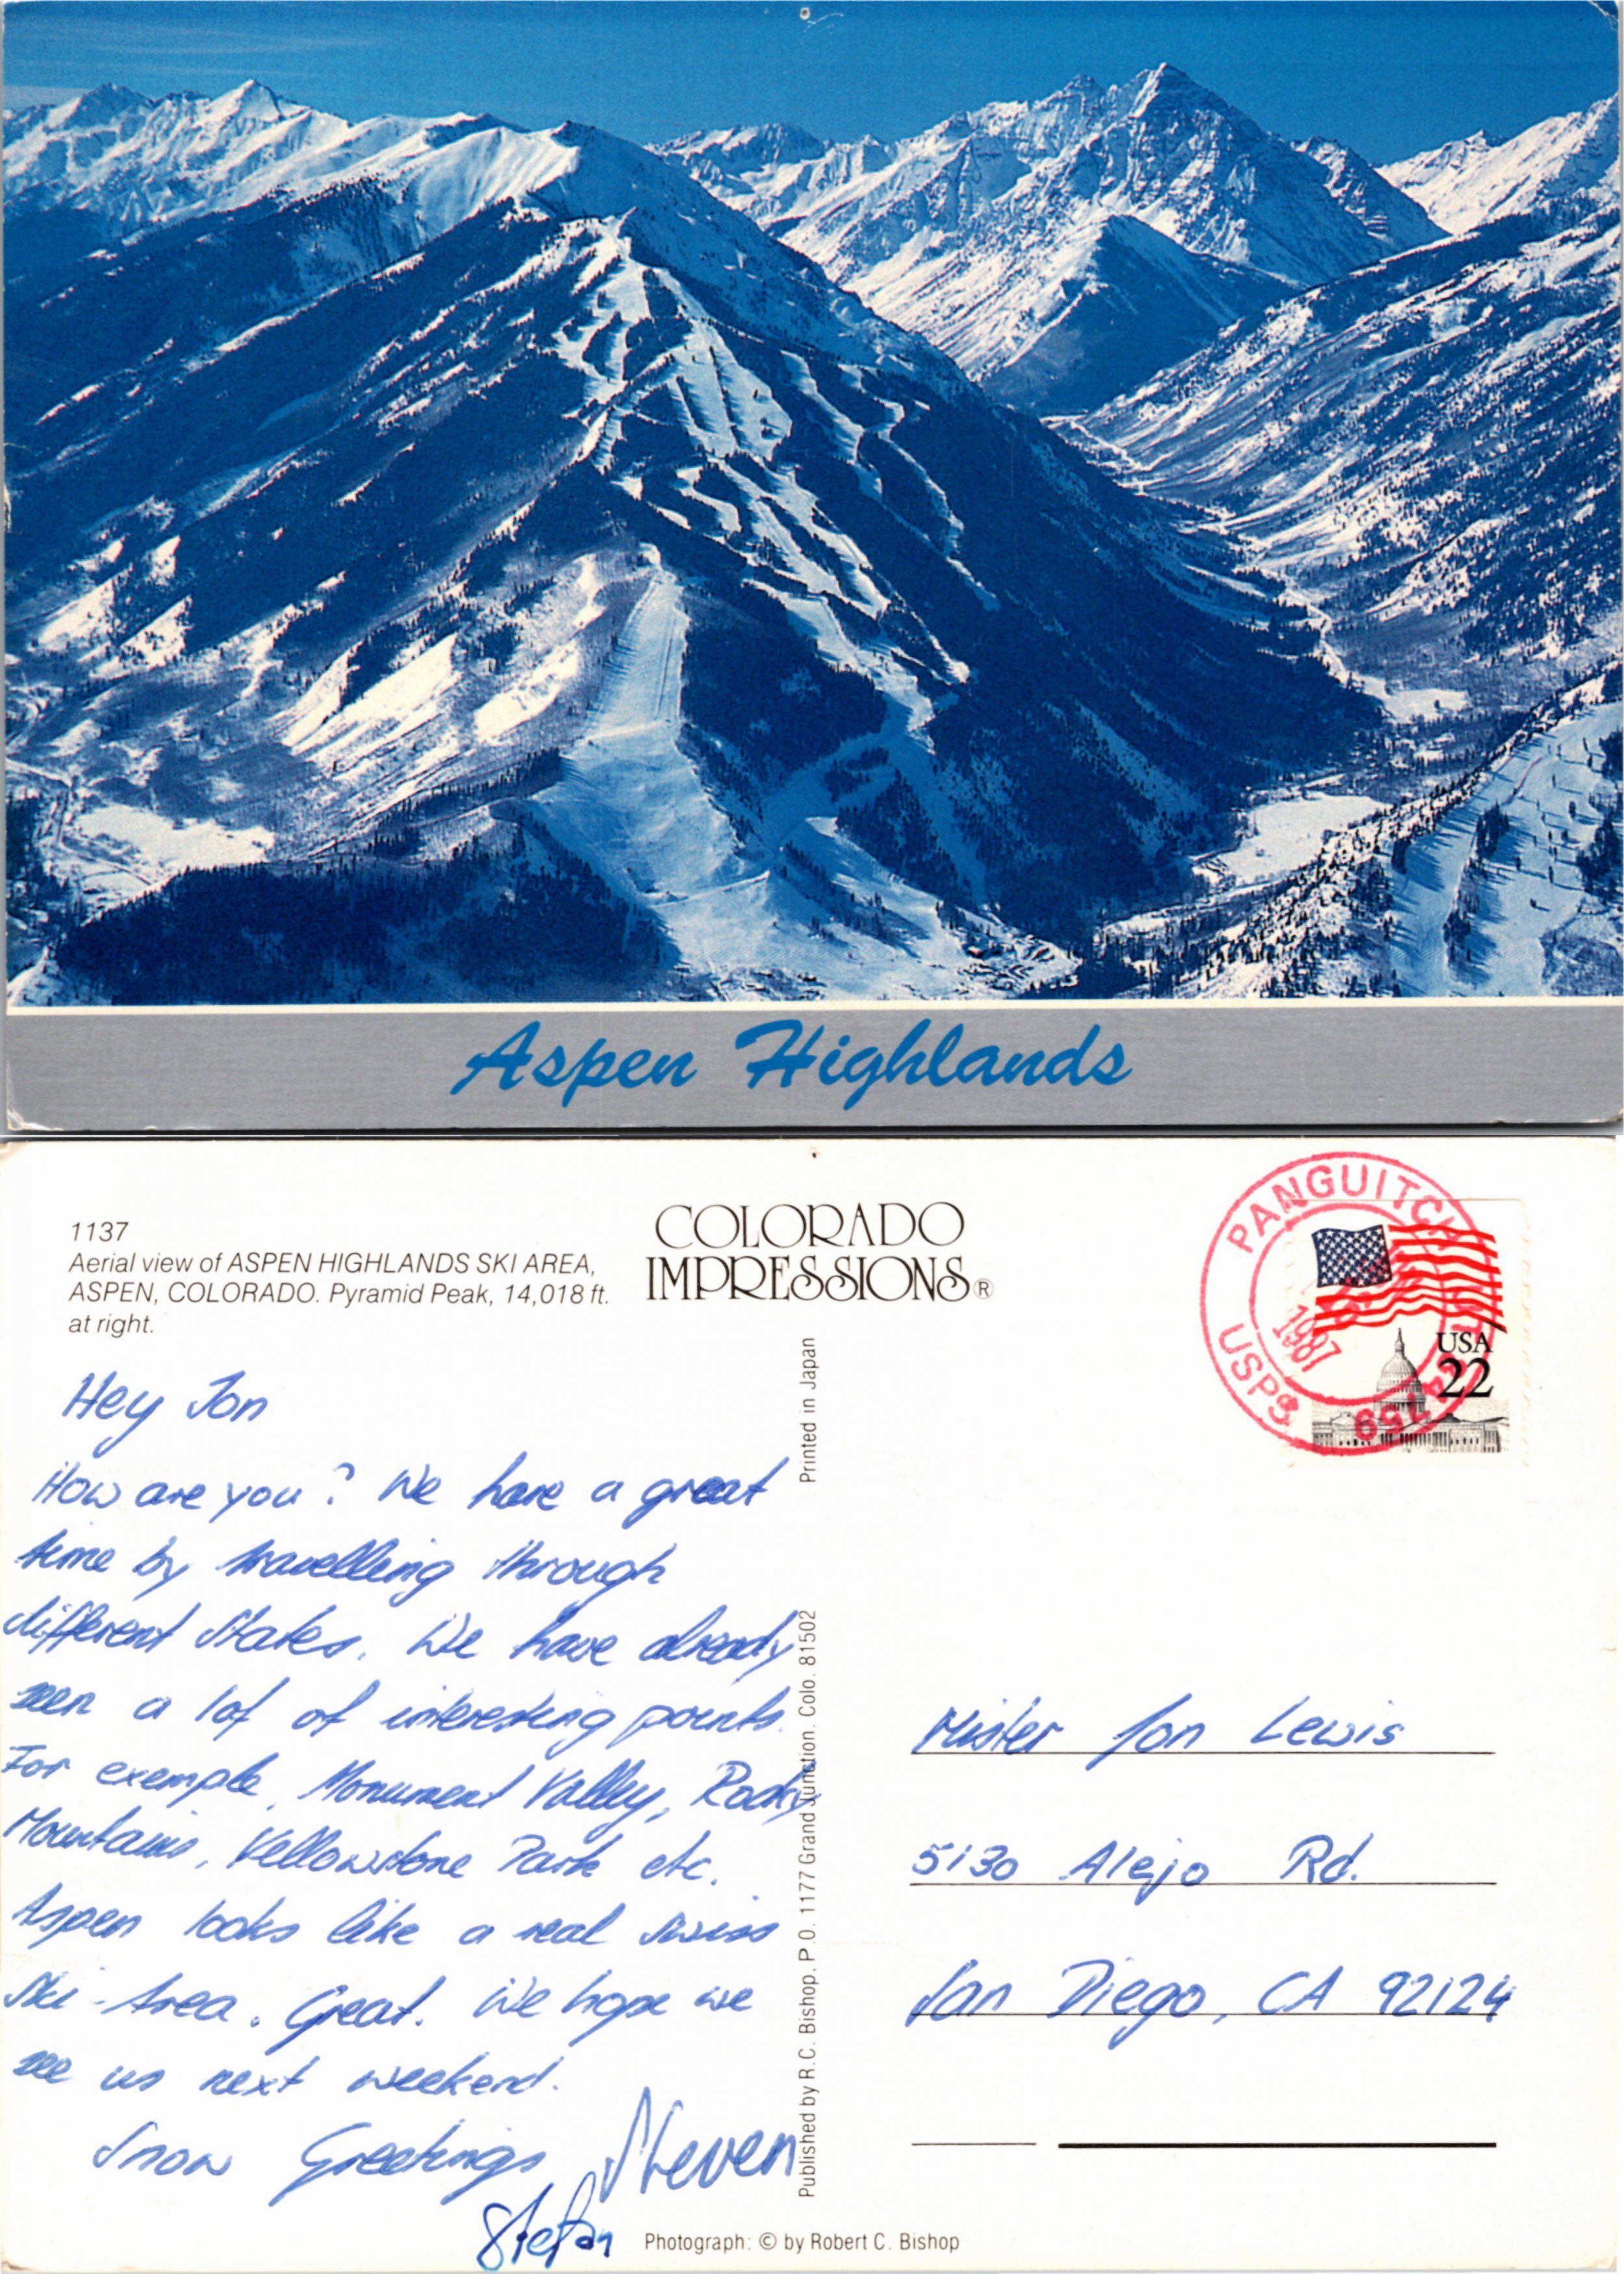 Aspen Highlands
1137
Aerial view of ASPEN HIGHLANDS SKI AREA,
ASPEN, COLORADO. Pyramid Peak, 14,018 ft.
at right.
COLORADO
IMPRESSIONS®
PANGUITCH
USPS
1987
84759
USA
22
Hey Jon
How are you? We have a great
time by travelling through
different States. We have already
seen a lot of interesting points.
For exemple, Monument Valley, Rocky
Mountains, Yellowstone Park etc.
Aspen looks like a real Swiss
Ski-Area. Great. We hope we
see us next weekend.
Snow Greetings Steven
Stefan
Printed in Japan
Published by R.C. Bishop. P.O. 1177 Grand Junction. Colo. 81502
Mister Jon Lewis
5130 Alejo Rd.
San Diego, CA 92124
Photograph: © by Robert C. Bishop